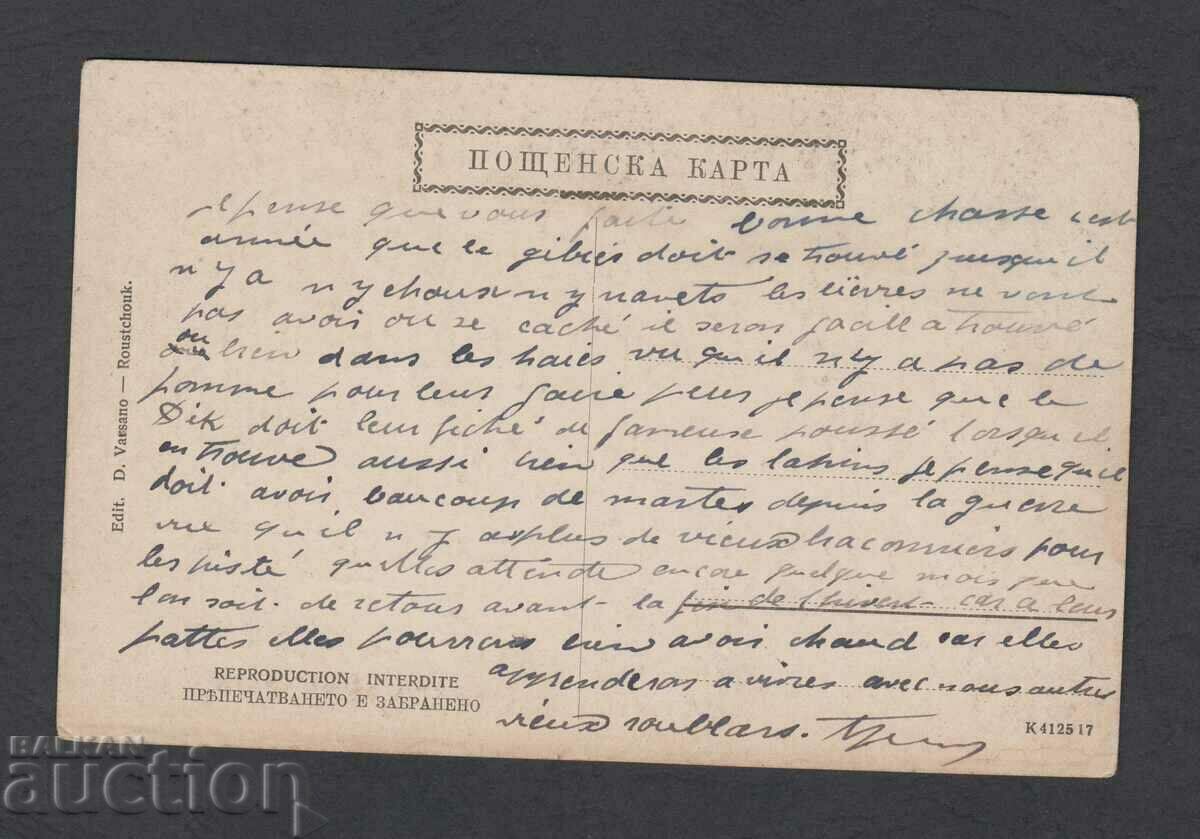 ПОЩЕНСКА КАРТА
je pense que vous faite bonne chasse cest
année que le gibiés doit se trouvé jusqu'il
n'y a n'y choux n'y navets les lièvres ne vont
pas avoir ou se caché il seron facille a trouvé
ou bien dans les haies vu qu'il n'y a pas de
pomme pour leur faire peur je pense que le
Dik doit leur fiché de fameuse poussé lorsqu'il
en trouve aussi bien que les lapins je pense qu'il
doit avoir beaucoup de martes depuis la guerre
vue qu'il n'y a plus de vieux braconniers pour
les pisté quelles attende encore quelque mois que
l'on soit de retour avant la fin de l'hivert car a leur
pattes elles pourrons bien avoir chaud car elles
apprenderon a vivres avec nous autres
vieux roublars.
Edit. D. Varsano — Roustchouk.
REPRODUCTION INTERDITE
ПРѢПЕЧАТВАНЕТО Е ЗАБРАНЕНО
K 412517
BALKAN
auction